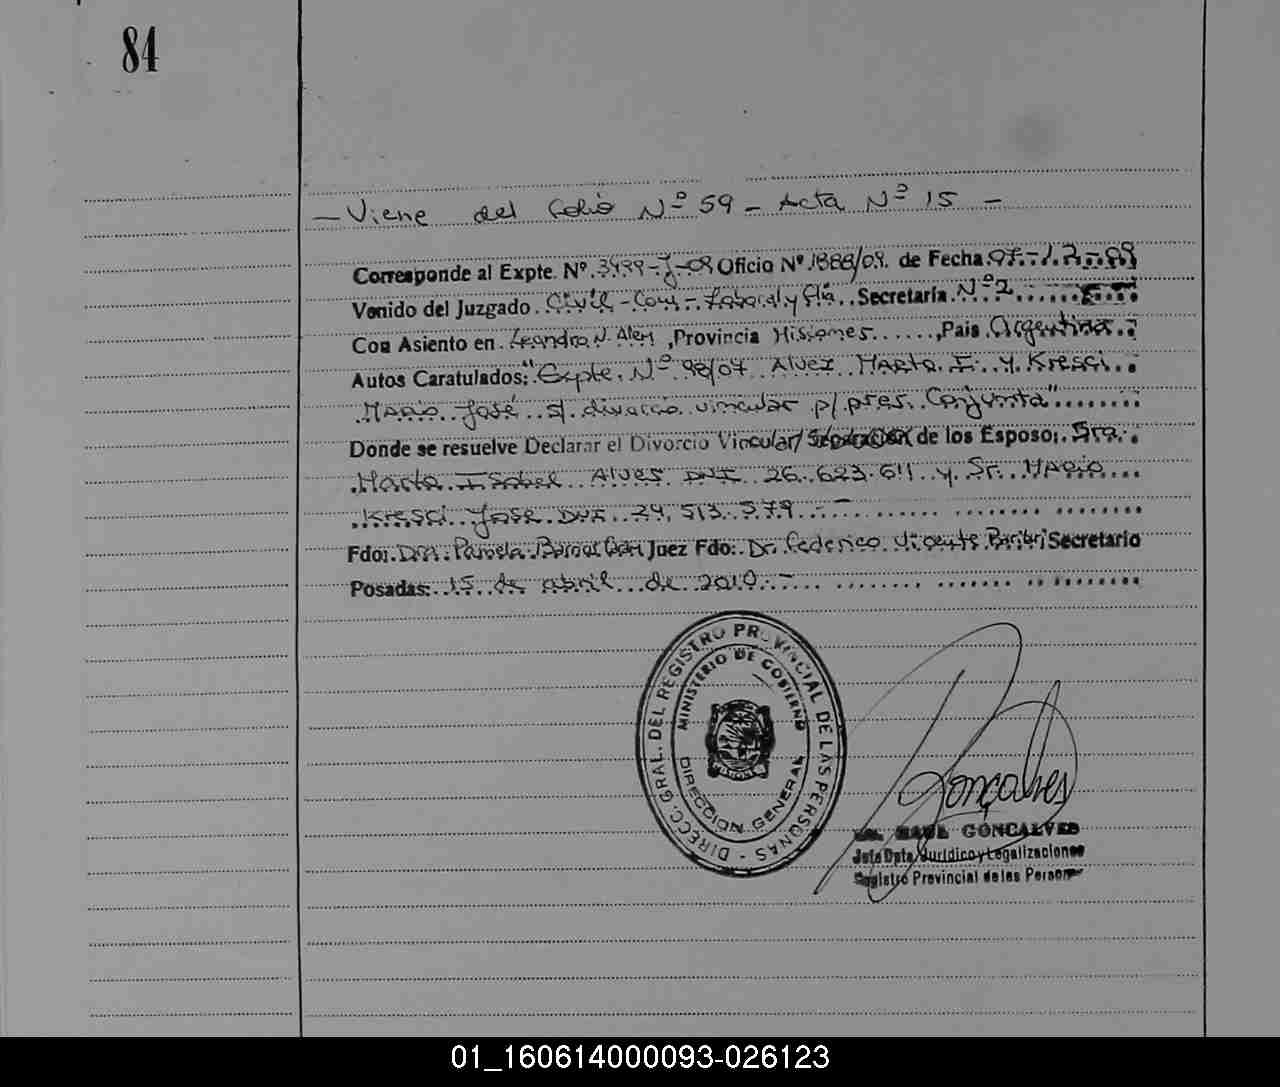 84
— Viene del folio Nº 59 — Acta Nº 15 —
Corresponde al Expte. Nº 3499-J-09 Oficio Nº 1888/09. de Fecha 07-12-09
Venido del Juzgado Civil - Com - Laboral y Flia. Secretaría Nº 2
Con Asiento en Leandro N. Alem, Provincia Misiones, País Argentina
Autos Caratulados: "Expte. Nº 98/07 Alvez Marta I. y Kresci
Mario José s/ divorcio vincular p/ pres. Conjunta"
Donde se resuelve Declarar el Divorcio Vincular/ Separación de los Esposo: Sra.
Marta Isabel Alves DNI 26.623.611 y Sr. Mario
Kresci José DNI 24.513.579 -
Fdo: Dra. Pamela Juez Fdo: Dr. Federico Vicente Secretario
Posadas: 15 de abril de 2010 -
DIRECC. GRAL. DEL REGISTRO PROVINCIAL DE LAS PERSONAS -
MINISTERIO DE GOBIERNO
DIRECCION GENERAL
Gonçalves
RAUL GONCALVES
Jefe Dpto. Jurídico y Legalizaciones
Registro Provincial de las Personas
01_160614000093-026123